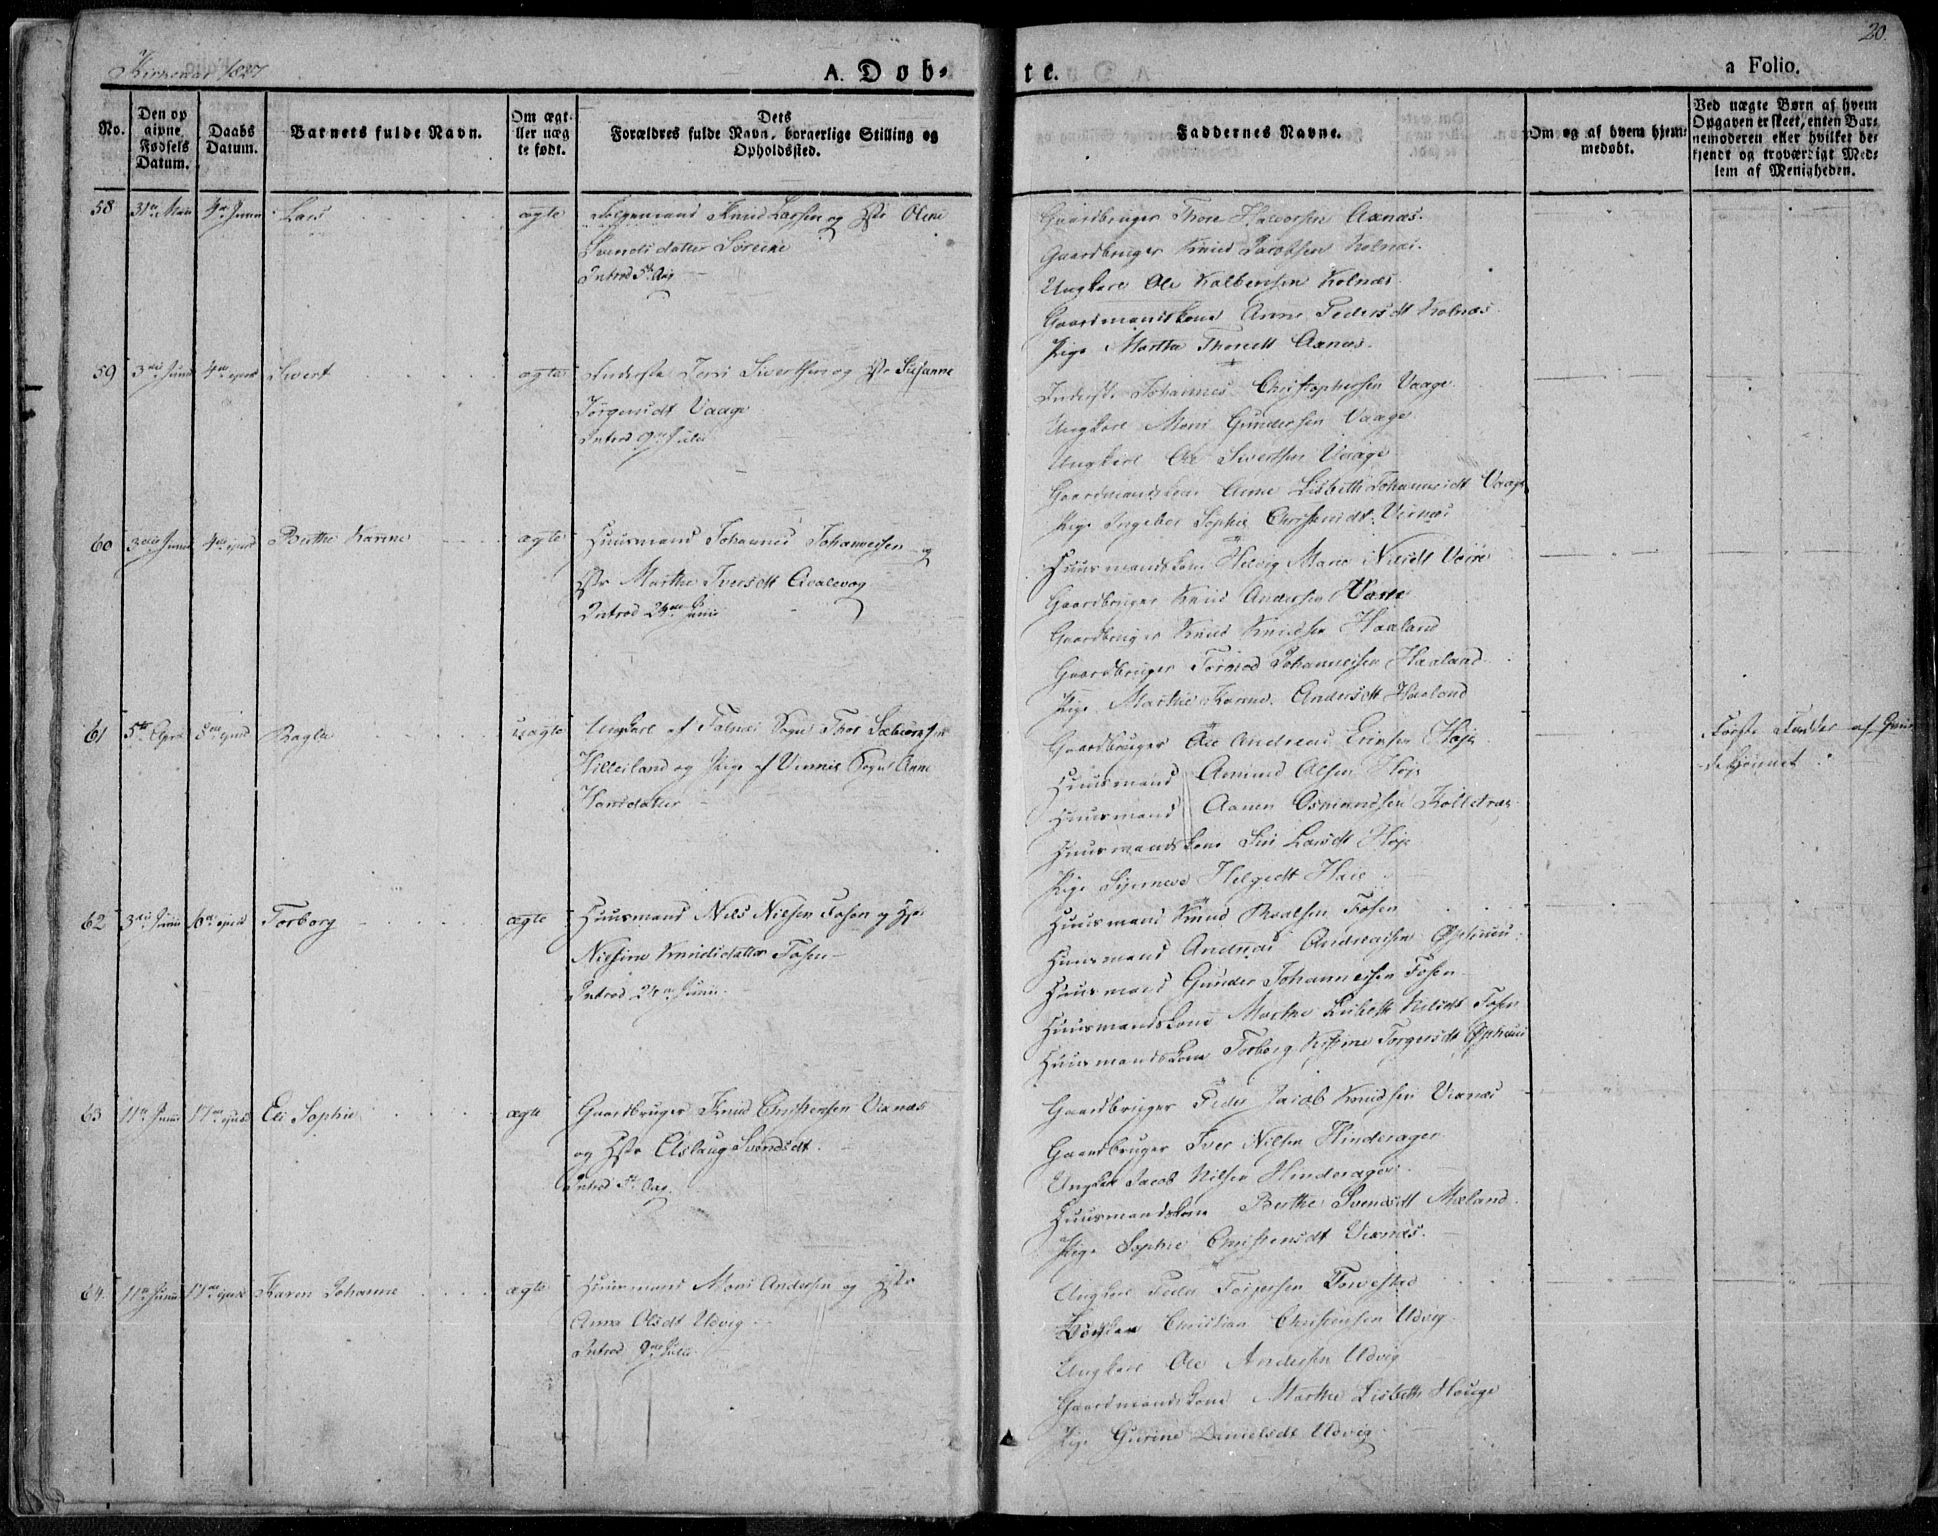 Kirkeaar 1827
A. Døb-
te.
20.
a Folio.
No.
Den op
givne
Fødsels
Datum.
Daabs
Datum.
Barnets fulde Navn.
Om ægt-
ller uæg
te født.
Dets
Forældres fulde Navn, borgerlige Stilling og
Opholdssted.
Faddernes Navne.
Om og af hvem hjem-
medøbt.
Ved uægte Børn af hvem
Opgaven er skeet, enten Bar-
nemoderen eller hvilket be-
kjendt og troværdigt Med-
lem af Menigheden.
58 31te Mai Lars ægte Knud Larssen og Hst Oline
Svendsdatter Søreine
Introd 5te Aug
Gaardbruger Thore Halvorsen Axnæs
Gaardbruger Knud Jacobsen Kolnæs
Ungkarl Ole Kolbensen Kolnæs
Gaardmandskone Anne Pedersdt Kolnæs
Pige Martha Thoresdt Axnæs
59 3die Junii 4de ejusd Sivert ægte Inderste Jens Sivertsen og Hst Susanne
Jørgensdt Vaage
Introd 9de Julii
Inderste Johannes Christophersen Vaage
Ungkarl Mons Gundersen Vaage
Ungkarl Ole Sivertsen Vaage
Gaardmandskone Anne Lisbeth Johannesdt Vaage
Pige Ingebor Sophie Christensdt Vixnæs
60 3die Junii 4de ejusd Berthe Karine ægte Huusmand Johannes Johannessen og
Hst Marthe Iversdt Avalevog
Introd 24de Junii
Huusmandskone Helvig Marie Nilsdt Vorre
Gaardbruger Knud Andersen Vorre
Gaardbruger Knud Knudsen Haaland
Gaardbruger Tormod Johannessen Haaland
Pige Marthe Karine Andersdt Haaland
61 5te ejusd Ragla uægte Ungkarl af Falnæs Sogn Thor Sæbjørnsen
Hilleiland og Pige af Vinnis Sogn Anne
Hansdatter
Gaardbruger Ole Andreas Ericsen Høje
Huusmand Amund Olsen Høje
Huusmand Aanen Osmundsen Kolletræe
Huusmandskone Siri Larsdt Høje
Pige Helgedt Haie
Første Fadder af
62 3die Junii ejusd Torborg ægte Huusmand Nils Nilsen Fosen og Hst
Nilsine Knudsdatter Fosen
Introd 24de Junii
Huusmand Knud Roalsen Fosen
Huusmand Andreas Andreassen
Huusmand Gunder Johannessen Fosen
Huusmandskone Marthe Lisbeth Nilsdt Fosen
Huusmandskone Torborg Kistine Torgersdt
63 11te Junii 17de ejusd Eli Sophie ægte Gaardbruger Knud Christensen Vixnæs
og Hst Aslaug Svendsdt
Introd 5te Aug
Gaardbruger Peder Jacob Knudsen Vixnæs
Gaardbruger Iver Nilsen Hinderager
Ungkarl Jacob Nilsen Hinderager
Huusmandskone Berthe Svendsdt Mæland
Pige Sophie Christensdt Vixnæs
64 11te Junii 17de ejusd Karen Johanne ægte Huusmand Mons Andersen og Hst
Anna Olsdt Udvig
Introd 9de Julii
Ungkarl Peder Torjersen Torvestad
Christian Christensen Udvig
Ungkarl Ole Andersen Udvig
Gaardmandskone Marthe Lisbeth Hauge
Pige Gurine Danielsdt Udvig